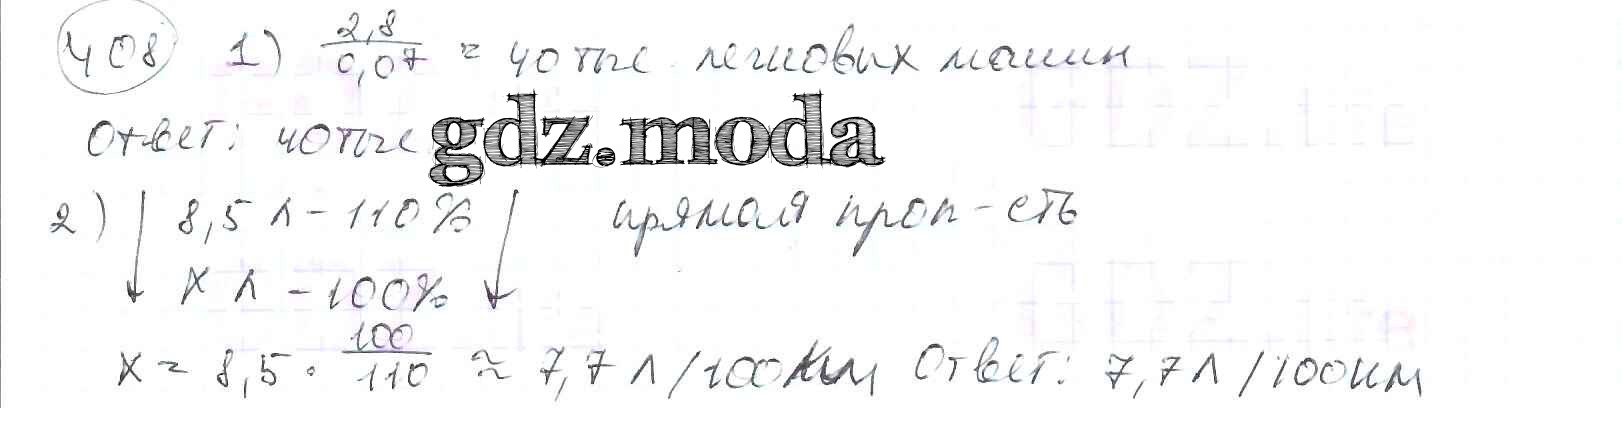 408 1) 2,8/0,07 = 40 тыс. легковых машин
Ответ: 40 тыс gdz.moda
2) ↓ 8,5 л - 110% ↓ прямая проп-сть
x л - 100%
x = 8,5 · 100/110 ≈ 7,7 л/100км Ответ: 7,7 л/100км